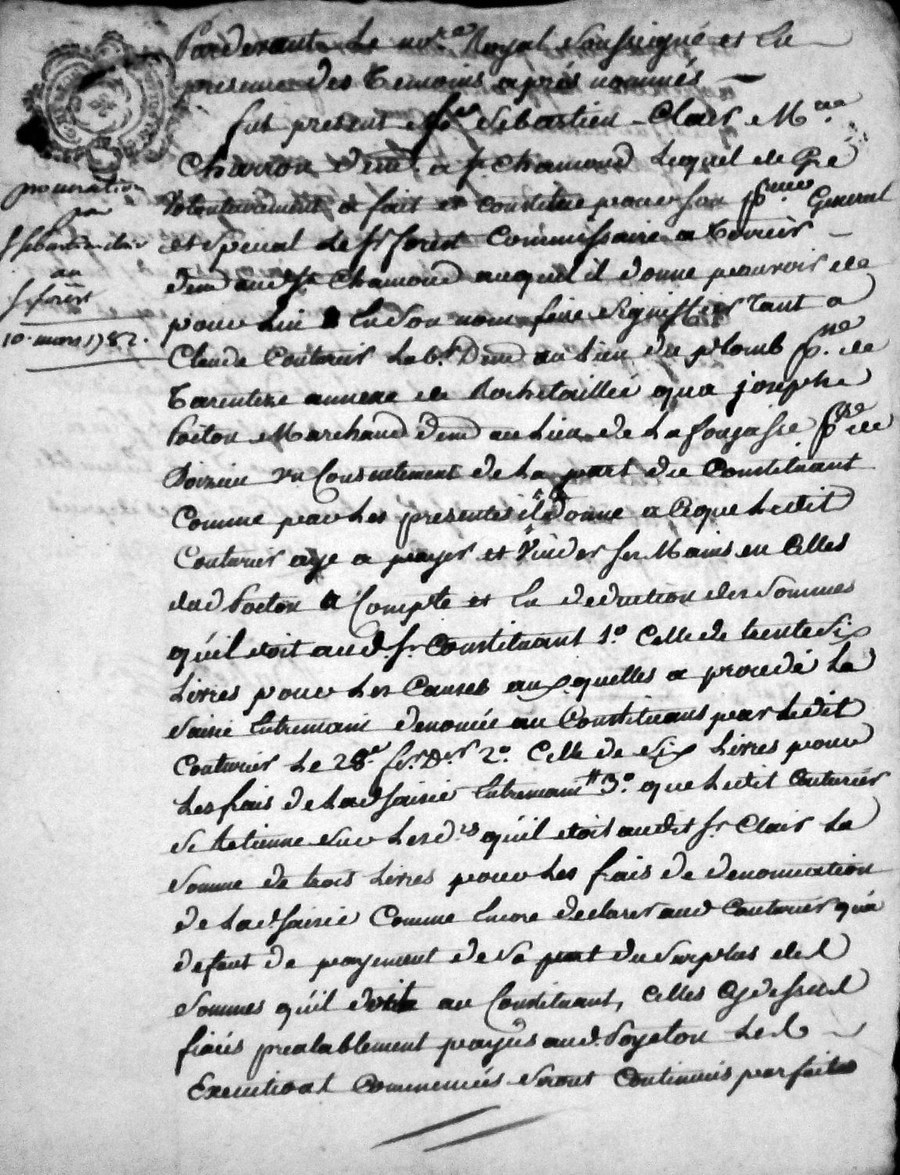 Pardevant Le no.re Royal Soussigné et En
presence des Temoins après nommés —
fut present Sebastien Clair M.re
Charron dem.t a St. Chamond Lequel de Gré
Volontairement a fait et constitué pour son General
et Special Le Sr. forest Commissaire a Terrier —
dem.t aud. St. Chamond auquel il donne pouvoir de
pour Lui & En Son nom faire Signiffier tant a
Claude Couturier hab.t dem.t au Lieu du plomb p.sse de
Tarentese annexe de Rochetaillée qu'a josephe
Poëton Marchand dem.t au Lieu de La p.sse de
Doizieu un Consentement de La part du Constituant
Comme par Les presentes il donne a Ce que Ledit
Couturier aye a payer et Vuider ses Mains en Celles
dud. Poëton a Compte et En deduction des Sommes
qu'il doit aud. Sr. Constituant 1.o Celle de trente Six
Livres pour Les Causes auxquelles a procedé La
Saisie Entremains denoncée au Constituans par Ledit
Couturier Le 28.e 2.o Celle de Six Livres pour
Les frais de Lad. Saisie Entremains 3.o que Ledit Couturier
Se Retienne sur Les d.es qu'il doit audit Sr. Clair La
Somme de trois Livres pour Les frais de denonciation
de Lad. Saisie Comme Encore declarer aud. Couturier qu'a
defaut de payement de Sa part du Surplus des
Sommes qu'il doit au Constituant, Celles Cy dessus
prealablement payés aud. Poyeton Les —
Executions Commencées Seront Continuées parfaites
procuration
par
Sr Sebastien Clair
au
Sr forest
10. mars 1782.